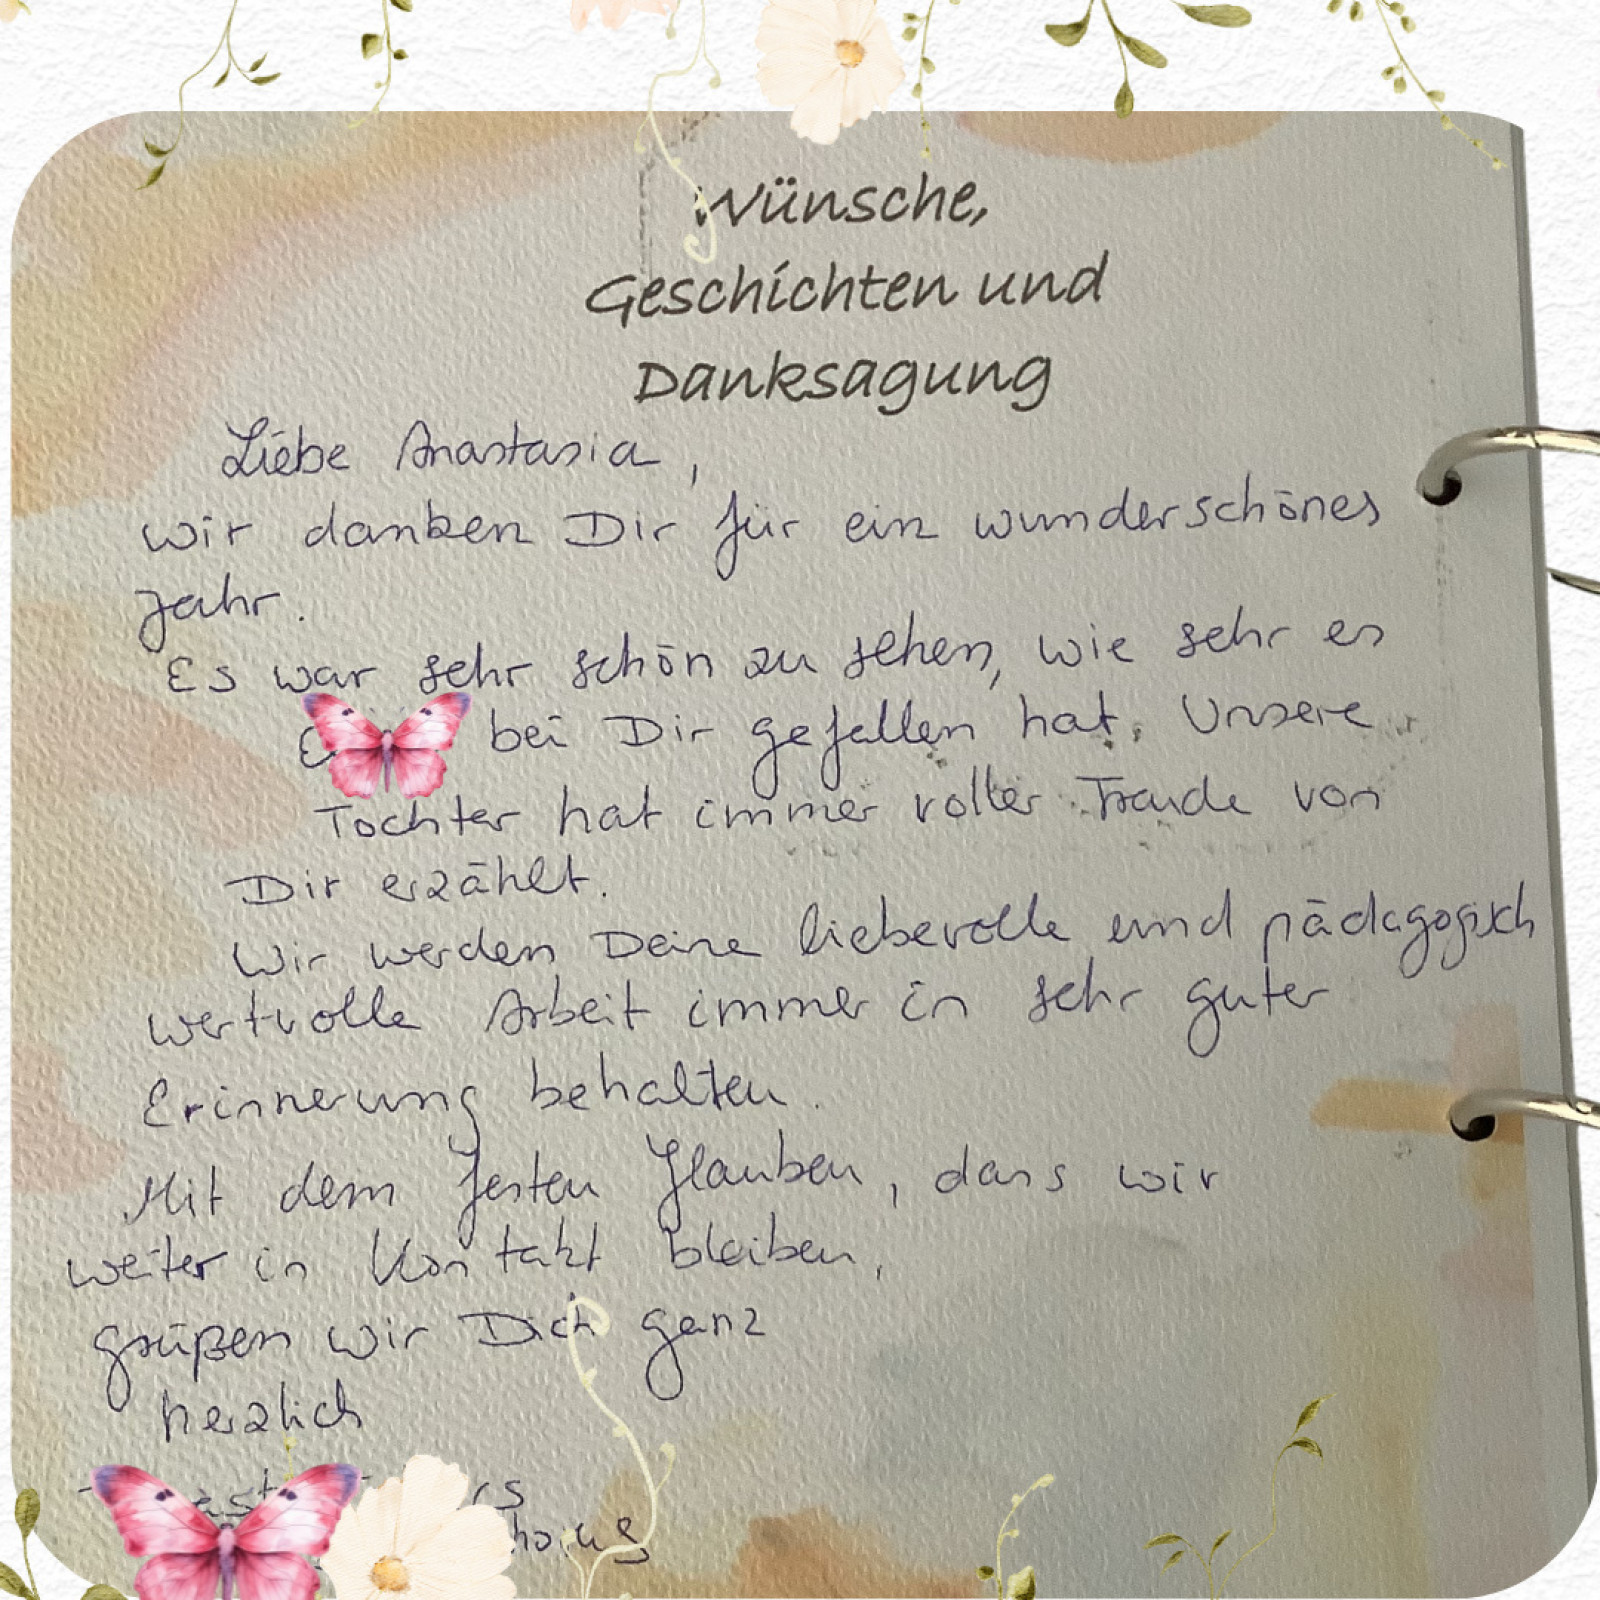 Wünsche,
Geschichten und
Danksagung
Liebe Anastasia,
wir danken Dir für ein wunderschönes
Jahr.
Es war sehr schön zu sehen, wie sehr es
bei Dir gefallen hat. Unsere
Tochter hat immer voller Freude von
Dir erzählt.
Wir werden Deine liebevolle und pädagogisch
wertvolle Arbeit immer in sehr guter
Erinnerung behalten.
Mit dem festen Glauben, dass wir
weiter in Kontakt bleiben,
grüßen wir Dich ganz
herzlich